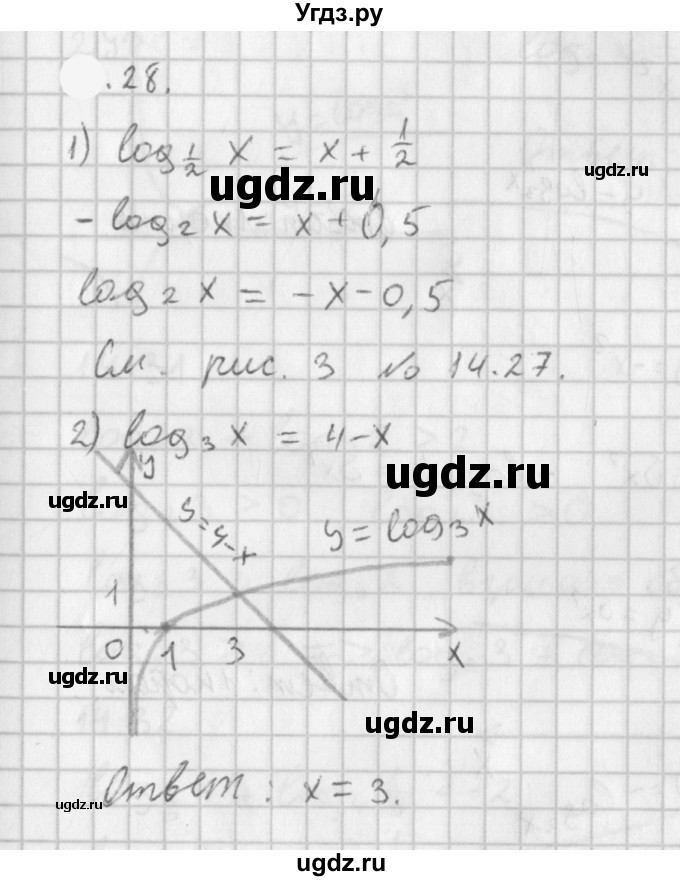 Угдз.ру
.28.
1) log 1/2 x = x + 1/2
ugdz.ru
ugdz.ru
- log 2 x = x + 0,5
log 2 x = -x - 0,5
См. рис. 3 № 14.27.
2) log 3 x = 4-x
y
ugdz.ru
ugdz.ru
y=4-x
y = log 3 x
1
0 1 3 x
ugdz.ru
ugdz.ru
Ответ: x = 3.
ugdz.ru
ugdz.ru